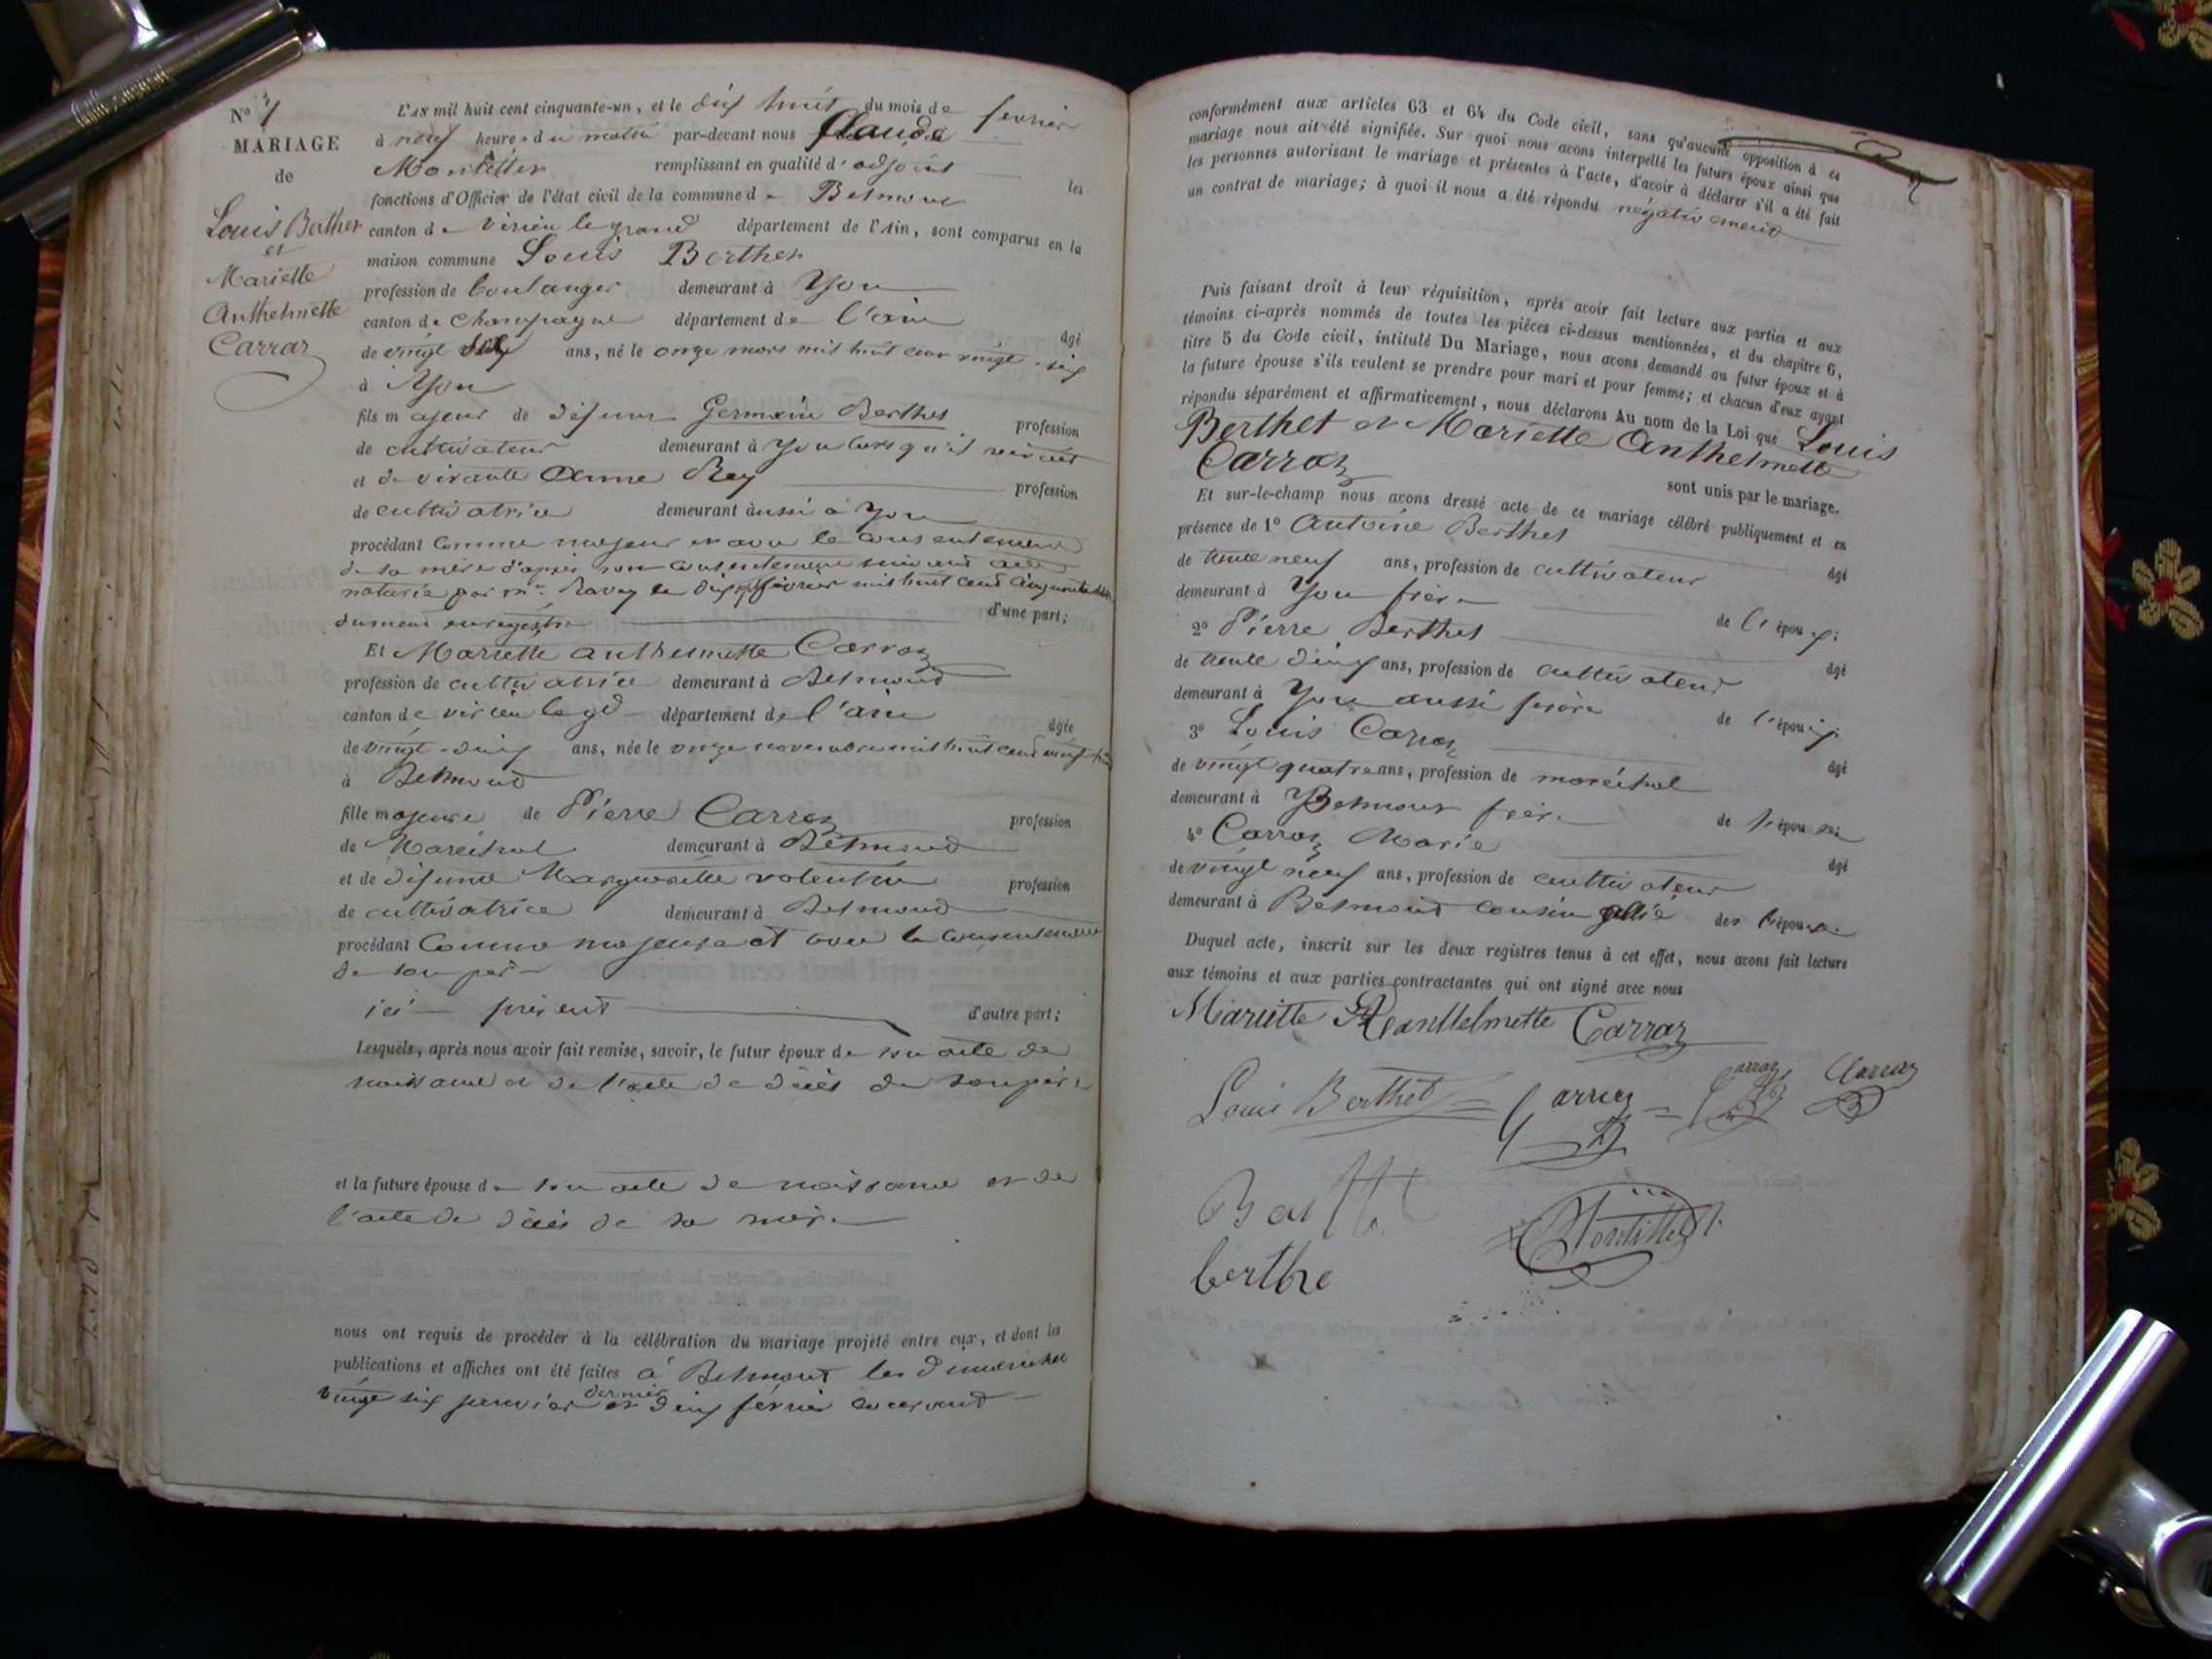 N° 1
MARIAGE
de
Louis Berthet
et
Mariette
Anthelmette
Carraz
L'AN mil huit cent cinquante-un, et le dix huit du mois de fevrier
à neuf heures du matin par-devant nous Claude
Montillet remplissant en qualité d'adjoint les
fonctions d'Officier de l'état civil de la commune de Belmont
canton de virieu le grand département de l'Ain, sont comparus en la
maison commune Louis Berthet
profession de boulanger demeurant à Yon
canton de Champagne département de l'ain âgé
de vingt ans, né le onze mars mil huit cent vingt six
à Yon
fils majeur de défunt Germain Berthet profession
de cultivateur demeurant à Yon lorsqu'il vivait
et de vivante Anne Rey profession
de cultivatrice demeurant aussi à Yon
procédant comme majeur et avec le consentement
de sa mère d'après son consentement suivant acte
notarié par me Ravey le dix février mil huit cent cinquante
dument enregistré d'une part;
Et Mariette anthelmette Carraz
profession de cultivatrice demeurant à Belmond
canton de virieu le gd département de l'ain âgée
de vingt deux ans, née le onze novembre mil huit cent vingt huit
à Belmond
fille majeure de Pierre Carraz profession
de Maréchal demeurant à Belmond
et de défunte Marguerite valentin profession
de cultivatrice demeurant à Belmond
procédant Comme majeure et avec le consentement
de son père
ici présent d'autre part;
Lesquels, après nous avoir fait remise, savoir, le futur époux de son acte de
naissance et de l'acte de décès de son père
et la future épouse de son acte de naissance et de
l'acte de décès de sa mère
nous ont requis de procéder à la célébration du mariage projeté entre eux, et dont les
publications et affiches ont été faites à Belmont les dimanches
vingt six janvier dernier et deux février courant
conformément aux articles 63 et 64 du Code civil, sans qu'aucune opposition à ce
mariage nous ait été signifiée. Sur quoi nous avons interpellé les futurs époux ainsi que
les personnes autorisant le mariage et présentes à l'acte, d'avoir à déclarer s'il a été fait
un contrat de mariage; à quoi il nous a été répondu négativement
Puis faisant droit à leur réquisition, après avoir fait lecture aux parties et aux
témoins ci-après nommés de toutes les pièces ci-dessus mentionnées, et du chapitre 6,
titre 5 du Code civil, intitulé Du Mariage, nous avons demandé au futur époux et à
la future épouse s'ils veulent se prendre pour mari et pour femme; et chacun d'eux ayant
répondu séparément et affirmativement, nous déclarons Au nom de la Loi que Louis
Berthet et Mariette Anthelmette
Carraz sont unis par le mariage.
Et sur-le-champ nous avons dressé acte de ce mariage célébré publiquement et en
présence de 1° Antoine Berthet âgé
de trente neuf ans, profession de cultivateur
demeurant à Yon frère de l'époux;
2° Pierre Berthet âgé
de trente deux ans, profession de cultivateur
demeurant à Yon aussi frère de l'époux;
3° Louis Carraz âgé
de vingt quatre ans, profession de maréchal
demeurant à Belmont frère de l'épouse
4° Carraz Marie âgé
de vingt neuf ans, profession de cultivateur
demeurant à Belmond cousin allié de l'épouse
Duquel acte, inscrit sur les deux registres tenus à cet effet, nous avons fait lecture
aux témoins et aux parties contractantes qui ont signé avec nous
Mariette Anthelmette Carraz
Louis Berthet Carraz Carraz Carraz
berthe Montillet